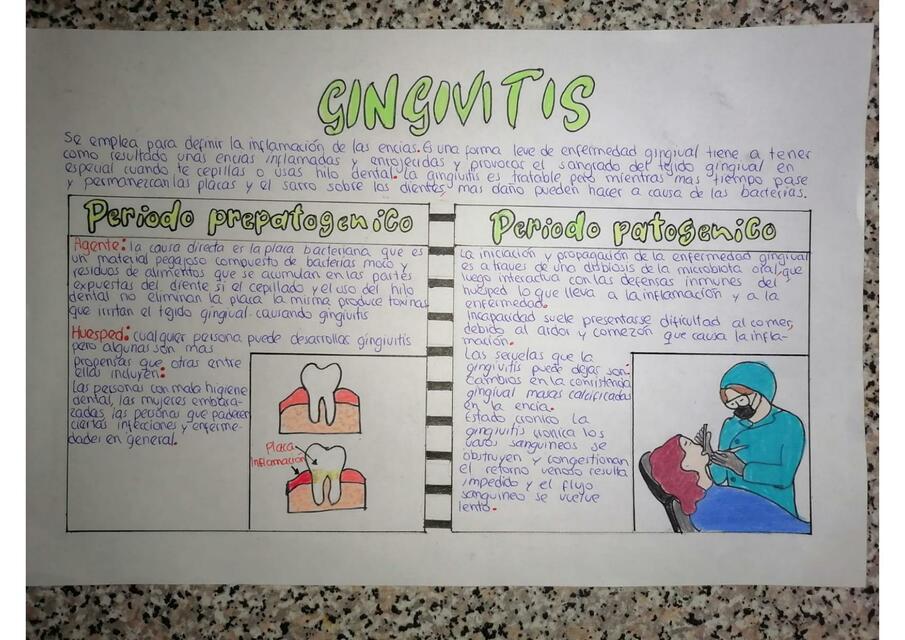 GINGIVITIS
Se emplea para definir la inflamación de las encias. Es una forma leve de enfermedad gingival tiene a tener
como resultado unas encias inflamadas y enrojecidas y provocar el sangrado del tejido gingival en
especial cuando te cepillas o usas hilo dental. la gingivitis es tratable pero mientras mas tiempo pase
y permanezcan las placas y el sarro sobre los dientes, mas daño pueden hacer a causa de las bacterias.
Periodo prepatogenico
Agente: la causa directa es la placa bacteriana que es
un material pegajoso compuesto de bacterias moco y
residuos de alimentos que se acumulan en las partes
expuestas del diente si el cepillado y el uso del hilo
dental no eliminan la placa la misma produce toxinas
que irritan el tejido gingival causando gingivitis
Huesped: cualquier persona puede desarrollas gingivitis
pero algunas son mas
propensas que otras entre
ellas incluyen:
las personas con mala higiene
dental, las mujeres embara-
zadas, las personas que padecen
ciertas infecciones y enferme-
dades en general.
Placa
Inflamación
Periodo patogenico
La iniciación y propagación de la enfermedad gingival
es a traves de una disbiosis de la microbiota oral, que
luego interactiva con las defensas inmunes del
huesped lo que lleva a la inflamación y a la
enfermedad.
Incapacidad suele presentarse dificultad al comer,
debido al ardor y comezón que causa la infla-
mación.
Las secuelas que la
gingivitis puede dejar son:
cambios en la consistencia
gingival masas calcificadas
en la encia.
Estado cronico la
gingivitis cronica los
vasos sanguineos se
obstruyen y congestionan
el retorno venoso resulta
impedido y el flujo
sanguineo se vuelve
lento.